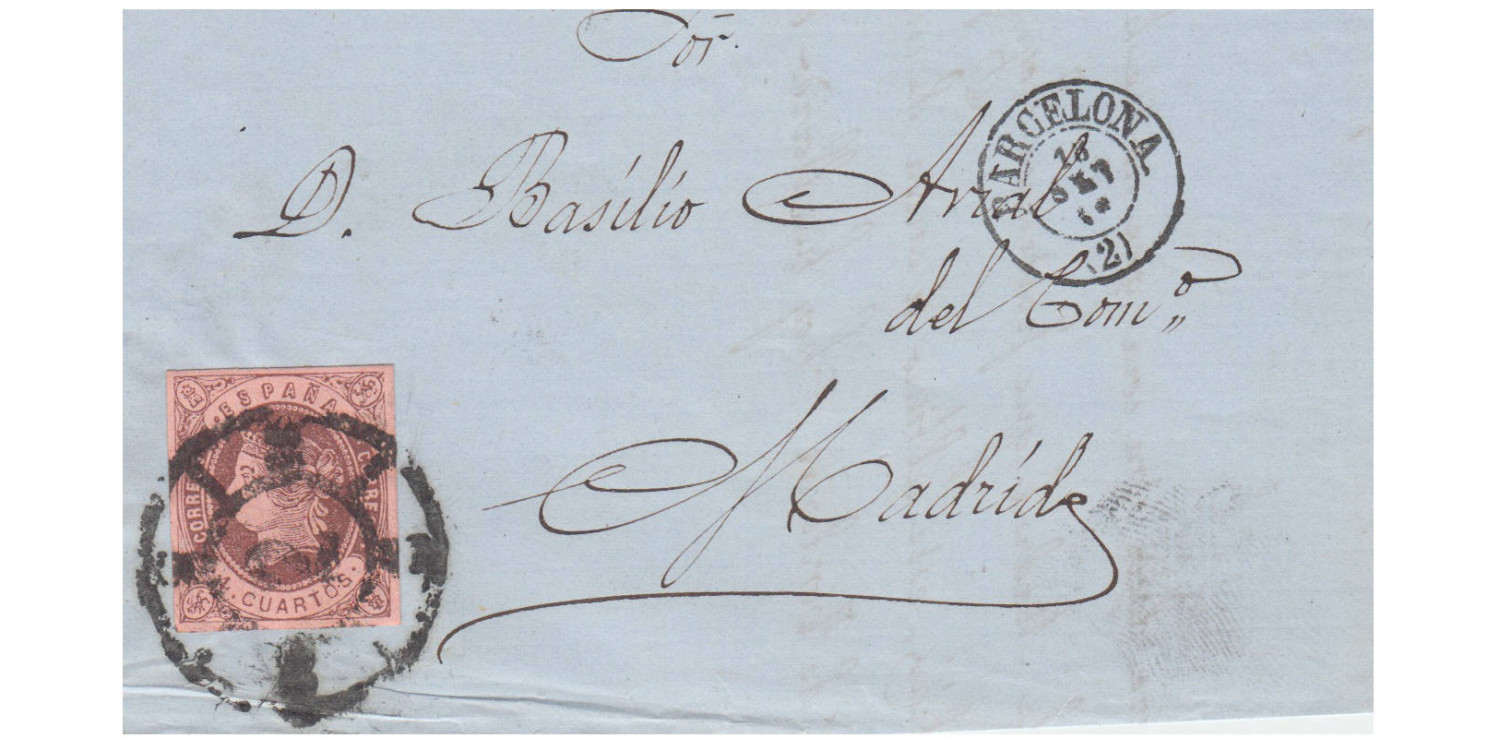 Sõr.
D. Basilio Arial
del Com.º
Madrid
BARCELONA
16
SET
(2)
ESPAÑA
CORREOS
4. CUARTOS.